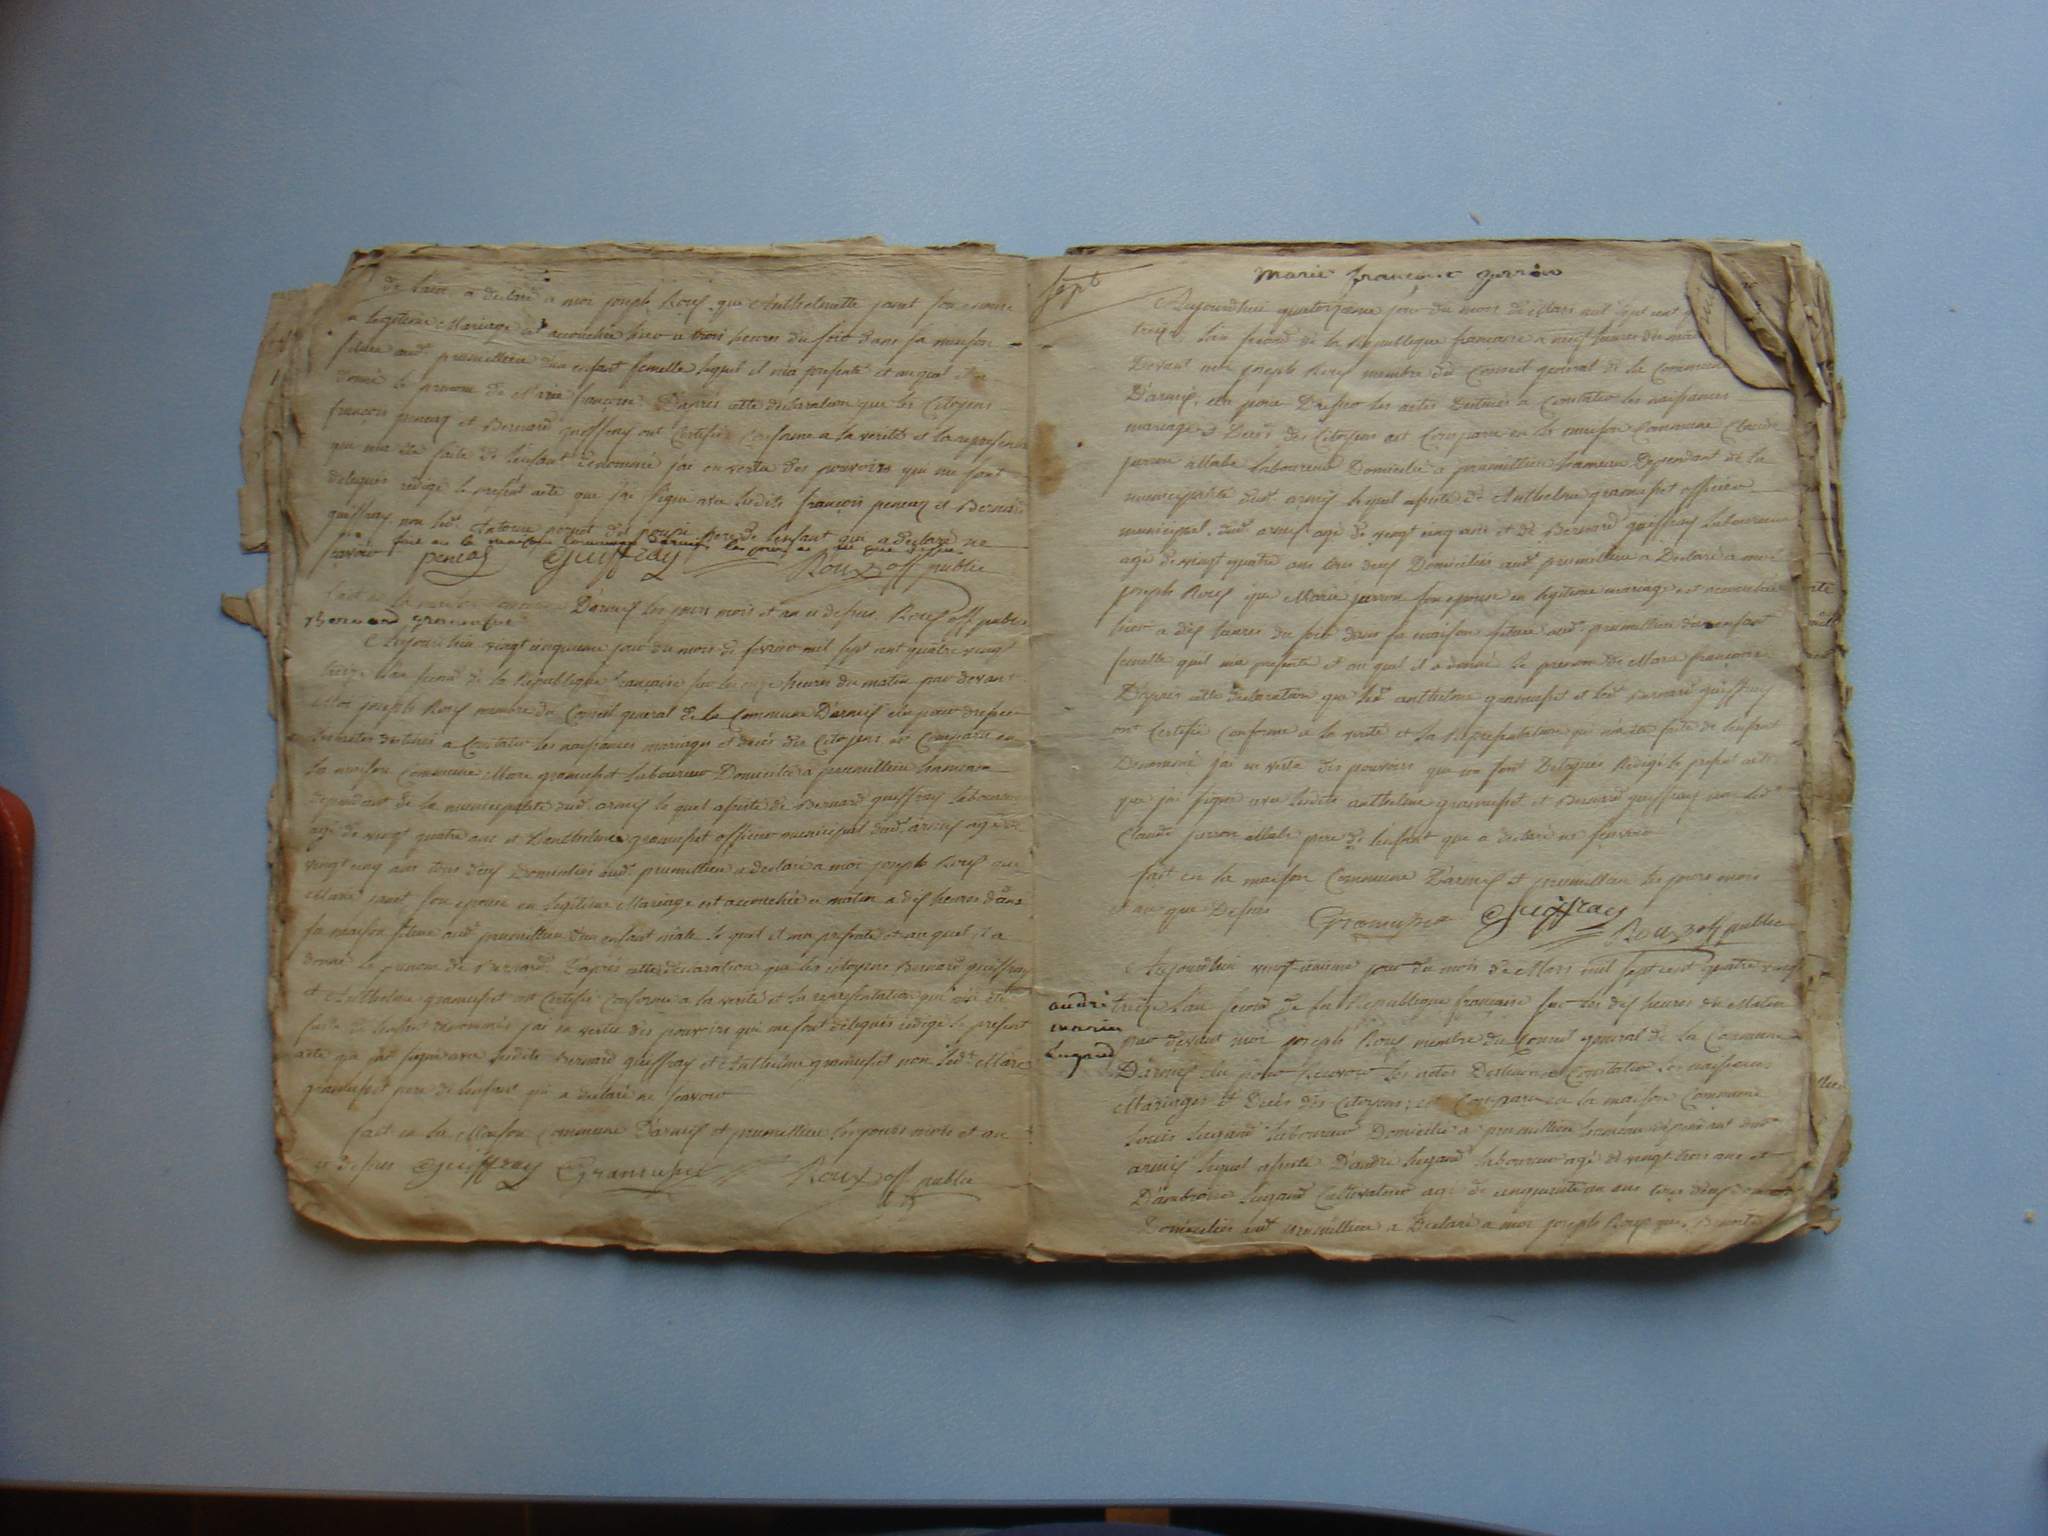 de l'ain, a declaré a moi joseph Roux que Anthelmette janet son epouse
en legitime Mariage est accouchée hier a trois heures du soir dans sa maison
située aud. premillieu d'un enfant femelle lequel il m'a presenté et auquel il a
donné le prenom de Marie françoise. D'après cette declaration que les Citoyens
françois peneaz et Bernard guiffray ont Certifiée Conforme a la verité et la represen
qui m'a été faite de l'enfant denommé j'ai en vertu des pouvoirs qui me sont
delegués redigé le present acte que j'ai signé avec lesdits françois peneaz et Bernard
guiffray non led. pere de l'enfant qui a declaré ne
fait en la maison commune d'armix les jours et an que dessus
scavoir peneaz Guiffray Roux off public
D'armix les jours mois et an ci dessus. Roux off public
Bernard gramusset
Aujourdhui vingt cinquieme jour du mois de fevrier mil sept cent quatre vingt
treize l'an second de la Republique francaise sur les onze heures du matin par devant
Moi joseph Roux membre du Conseil general de la Commune D'armix elu pour dresser
les actes destinés a Constater les naissances mariages et decés des Citoyens est Comparu en
la maison Commune Marc gramusset laboureur Domicilié a premillieu hameau
dependant de la municipalité dud. armix le quel assisté de Bernard guiffray laboureur
agé de vingt quatre ans et d'anthelme gramusset officier municipal dud. armix agé de
vingt cinq ans tous deux Domiciliés aud. premillieu a declaré a moi joseph Roux que
Marie janet son epouse en legitime Mariage est accouchée ce matin a dix heures dans
sa maison située aud. premillieu d'un enfant mâle le quel il m'a presenté et auquel il a
donné le prenom de Bernard. D'après cette declaration que les citoyens Bernard guiffray
et Anthelme gramusset ont Certifié Conforme a la verité et la representation qui m'a été
faite de l'enfant denommé j'ai en vertu des pouvoirs qui me sont délegués redigé le present
acte que j'ai signé avec lesdits Bernard guiffray et Anthelme gramusset non led. Marc
gramusset pere de l'enfant qui a declaré ne scavoir
fait en la Maison Commune D'armix et premillieu les jours mois et an
ci dessus Guiffray Gramusset Roux off public
Sept
Marie françoise jurron
Aujourdhui quatorzieme jour du mois de Mars mil sept cent
treize l'an second de la Republique francaise a neuf heures du
Devant moi joseph Roux membre du Conseil general de la Commune
D'armix, elu pour Dresser les actes Destinés a Constater les naissances
mariages & Decés des Citoyens est Comparu en la maison Commune Claude
jurron allabe laboureur Domicilié a premillieu hameau Dependant de la
municipalité dud. armix lequel assisté de Anthelme gramusset officier
municipal dud. armix agé de vingt cinq ans et de Bernard guiffray laboureur
agé de vingt quatre ans tous deux Domiciliés aud. premillieu a Declaré a moi
joseph Roux que Marie jurron son epouse en legitime mariage est accouchée
hier a dix heures du soir dans sa maison située aud. premillieu d'un enfant
femelle qu'il m'a presenté et au quel il a donné le prenom de Marie françoise
D'après cette declaration que led. anthelme gramusset et led. Bernard guiffray
ont Certifié Conforme a la verité et la Representation qui m'a été faite de l'enfant
Denommé j'ai en vertu des pouvoirs qui me sont Delegués Redigé le present acte
que j'ai signé avec lesdits anthelme gramusset et Bernard guiffray non led.
Claude jurron allabe pere de l'enfant que a declaré ne scavoir
fait en la maison Commune D'armix et premillieu les jours mois
et an que Dessus Gramusset Guiffray Roux off public
Aujourdhui vingt unieme jour du mois de Mars mil sept cent quatre vingt
andré
marie
lugand
treize l'an second de la Republique française sur les dix heures du Matin
par devant moi joseph Roux membre du Conseil general de la Commune
D'armix elu pour les actes Destinés a Constater les naissances
Mariages & Decés des Citoyens est Comparu en la maison Commune
Louis lugand laboureur Domicilié a premillieu hameau dependant dud.
armix lequel assisté D'andré lugand laboureur agé de vingt trois ans et
D'ambroise lugand Cultivateur agé de cinquante un ans tous deux
Domiciliés aud. premillieu a Declaré a moi joseph Roux que